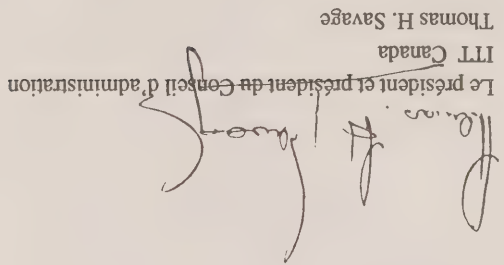 Thomas H. Savage
Le président et président du Conseil d'administration
ITT Canada
Thomas H. Savage